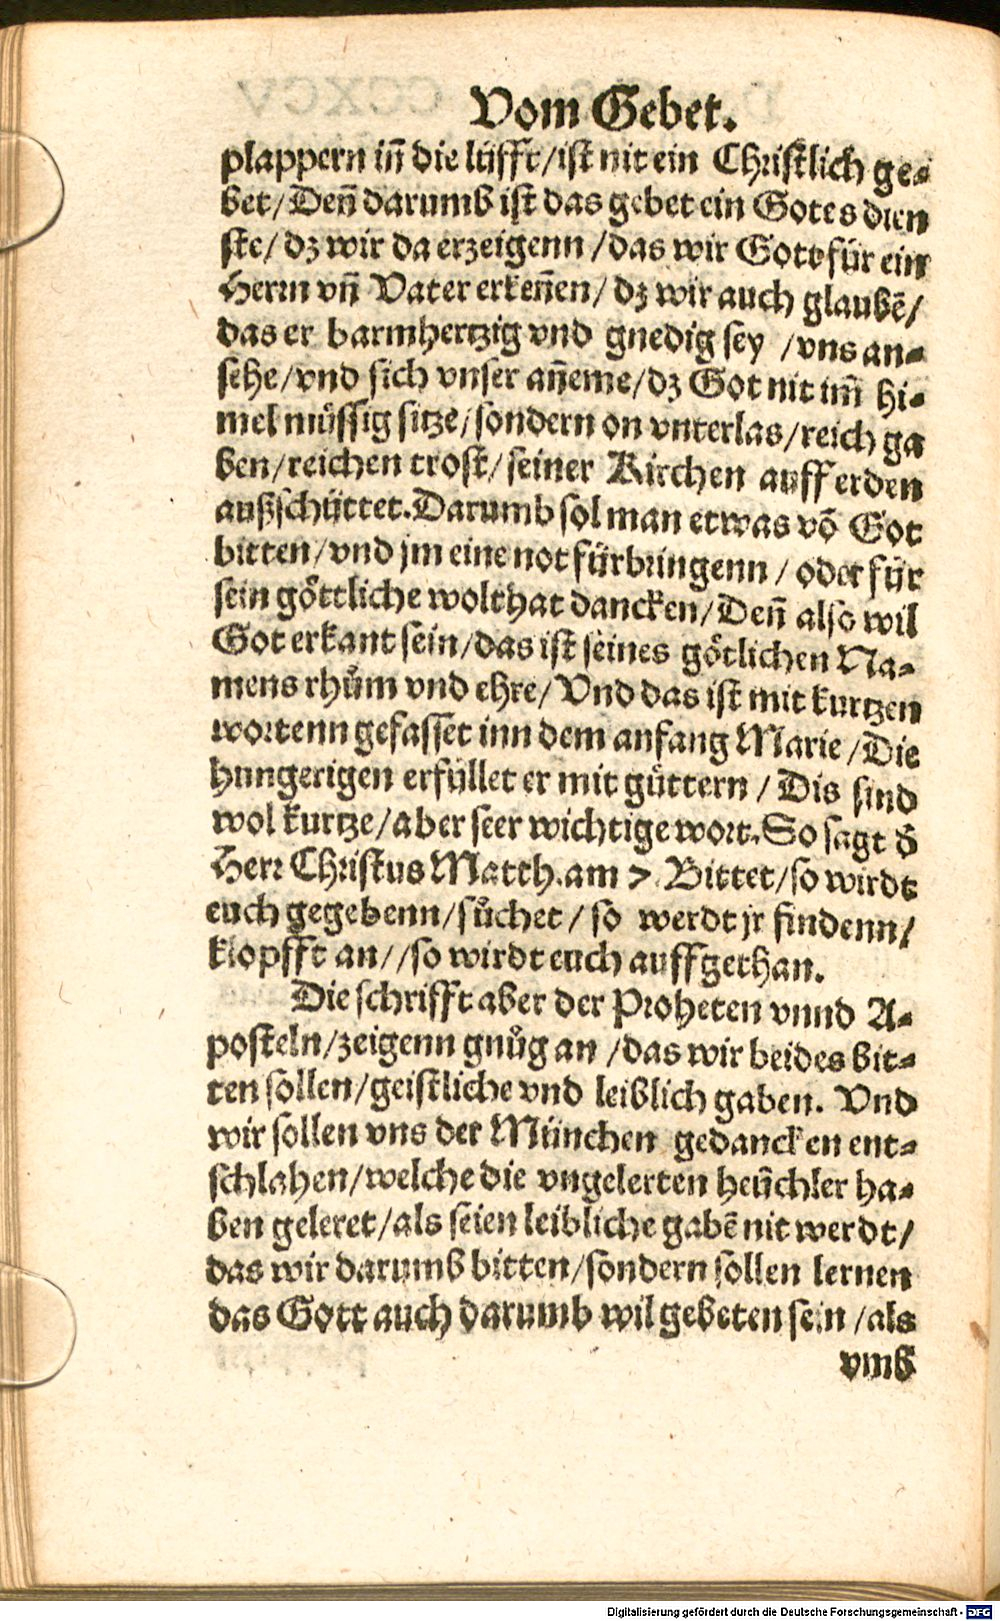 Vom Gebet.
plappern iñ die lüfft/ist nit ein Christlich ge-
bet/Deñ darumb ist das gebet ein Gotes dien
ste/ dz wir da erzeigenn /das wir Gott für ein
Herrn vñ Vater erkeñen/ dz wir auch glaubē/
das er barmhertzig vnd gnedig sey /vns an-
sehe/vnd sich vnser añeme/dz Got nit im̃ hi-
mel müssig sitze/sondern on vnterlas/reich ga
ben/reichen trost/seiner Kirchen auff erden
außschüttet.Darumb sol man etwas võ Got
bitten/vnd jm eine not fürbringenn / oder für
sein göttliche wolthat dancken/Deñ also wil
Got erkant sein/das ist seines götlichen Na-
mens rhům vnd ehre/Vnd das ist mit kurtzen
wortenn gefasset inn dem anfang Marie /Die
hungerigen erfüllet er mit güttern / Dis sind
wol kurtze/aber seer wichtige wort.So sagt d̄
Herr Christus Matth.am 7. Bittet/so wirdt
euch gegebenn/sůchet/ so werdt jr findenn/
klopfft an//so wirdt euch auffgethan.
Die schrifft aber der Proheten vnnd A-
posteln/zeigenn gnůg an /das wir beides bit-
ten sollen/geistliche vnd leiblich gaben. Vnd
wir sollen vns der München gedancken ent-
schlahen/welche die vngelerten heüchler ha-
ben geleret/als seien leibliche gabē nit werdt/
das wir darumb bitten/sondern sollen lernen
das Gott auch darumb wil gebeten sein /als
vmb
Digitalisierung gefördert durch die Deutsche Forschungsgemeinschaft - DFG